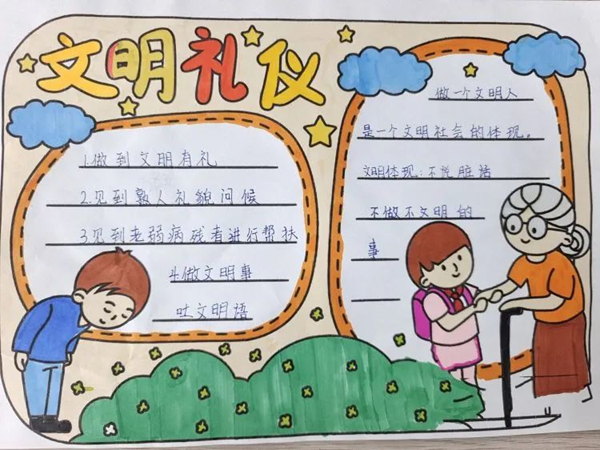 文明礼仪
1.做到文明有礼
2.见到熟人礼貌问候
3.见到老弱病残者进行帮扶
4.做文明事
吐文明语
做一个文明人
是一个文明社会的体现。
文明体现:不说脏话
不做不文明的
事